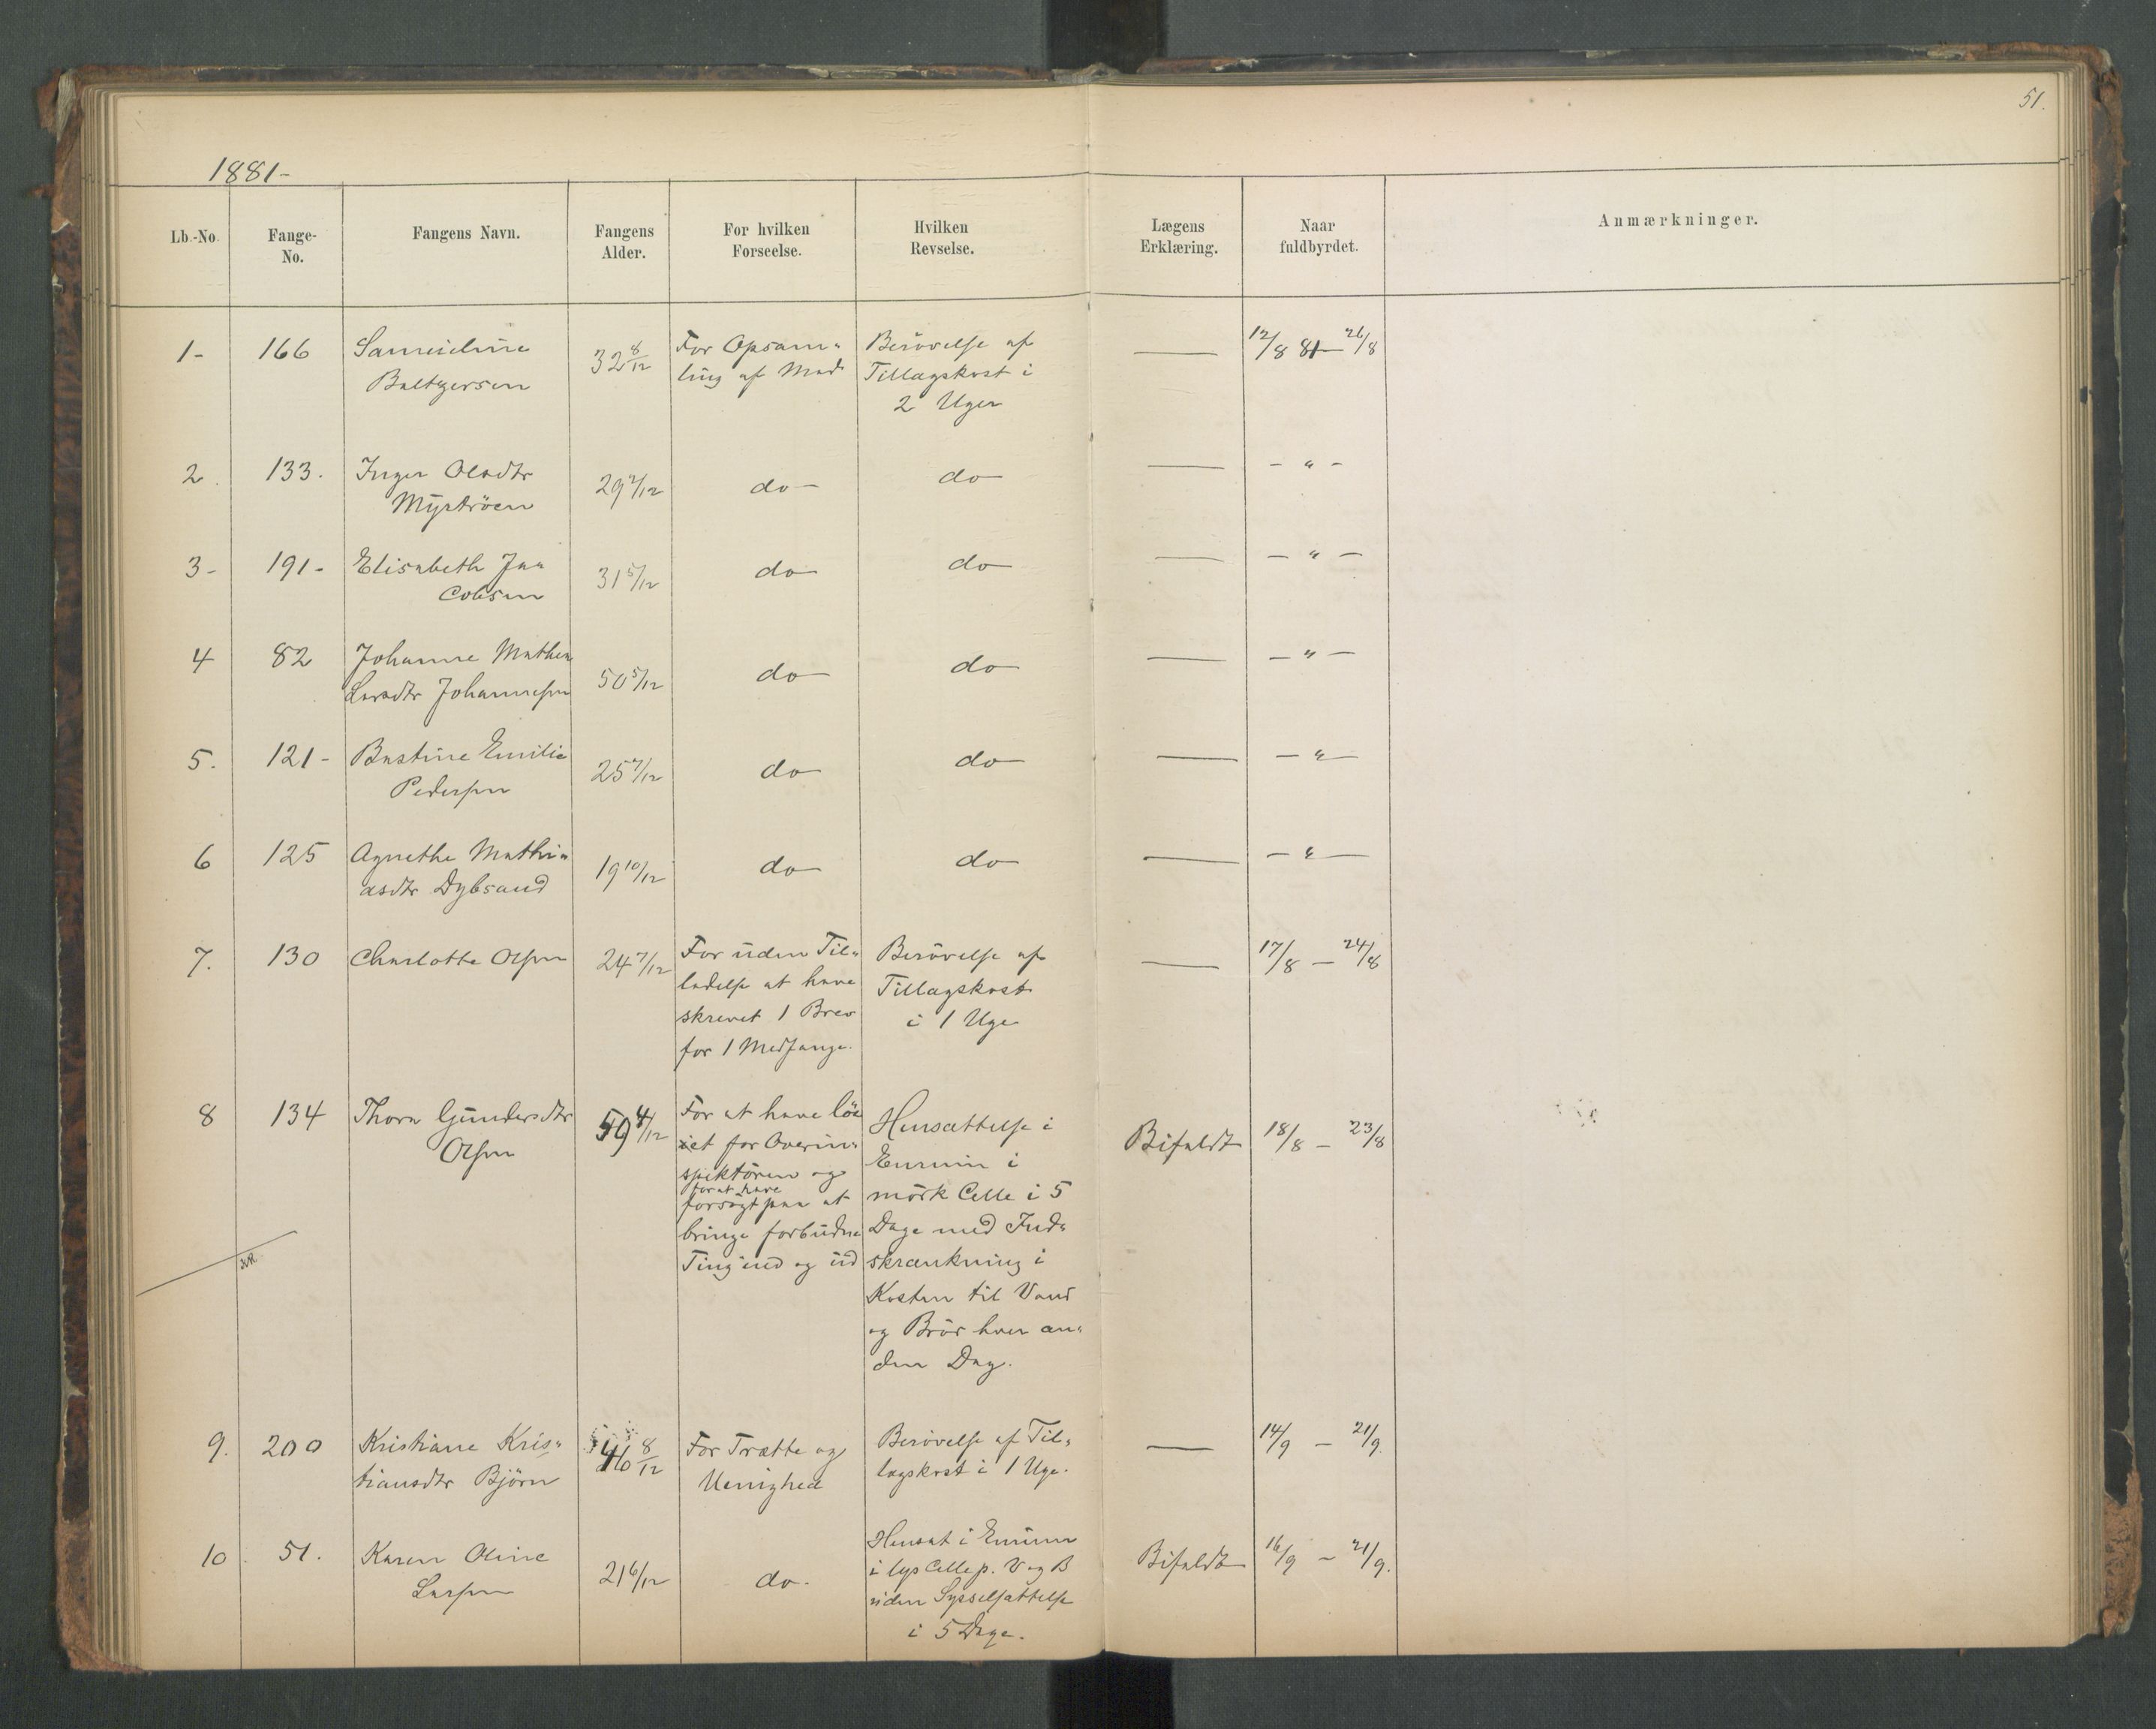 51.
1881-
Lb.-No. Fange-No. Fangens Navn. Fangens Alder. For hvilken Forseelse. Hvilken Revselse. Lægens Erklæring. Naar fuldbyrdet. Anmærkninger.
1- 166 32 8/12 For Opsam- Berövelse af — 12/8 81 — 26/8
Baltzersen ling af Mad Tillægskost i
2 Uger
2. 133. Inger Olsdtr 29 do — do — — - " -
Myströen
3- 191- Elisabeth Ja- 31 5/12 do do — - " -
cobsen
4 82 Johanne Mathea 50 5/12 do do — - " -
Larsdtr Johannesen
5. 121- Bastine Emilie 25 7/12 do do — - " -
Pedersen
6 125 Agnethe Mathi- 19 10/12 do do — - " -
asdtr Dybsand
7. 130 Charlotte Olsen 24 7/12 For uden Til- Berövelse af — 17/8 — 24/8
ladelse at have Tillægskost
skrevet 1 Brev i 1 Uge
for 1 Medfange.
8 134 Thora Gundersdtr 59 4/12 For at have löi Hensættelse i Bifaldt 18/8 — 23/8
Olsen iet for Overin- Enrum i
spektören og mörk Celle i 5
for at have
forsögt paa at Dage med Ind-
bringe forbudne skrænkning i
Ting ind og ud Kosten til Vand
og Bröd hver an-
den Dag.
9. 200 Kristiane Kris- 46 8/12 For Trætte og Berövelse af Til- — 14/9 — 21/9.
tiansdtr Björn Uenighed lægskost i 1 Uge.
10. 51. Karen Oline 21 6/12 do. Hensat i Enrum Bifaldt 16/9 — 21/9.
Larsen i lys Celle p. V og B
uden Sysselsættelse
i 5 Dage.